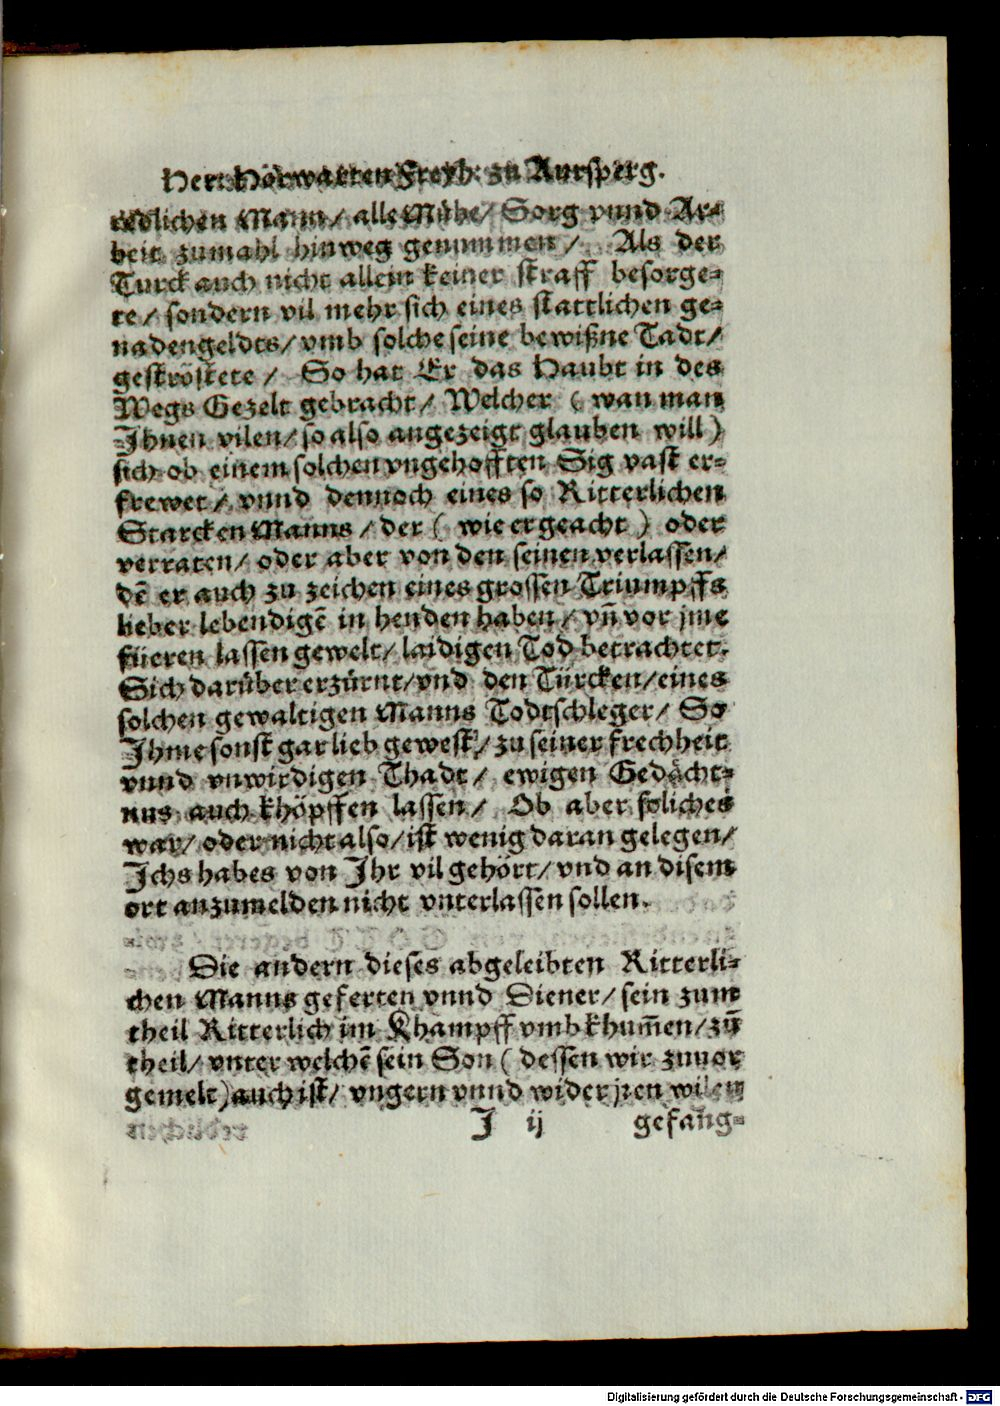 Herr Hörwarten Freyh: zu Aursperg.
redlichen Mann / alle Mühe / Sorg vnnd Ar-
beit zumahl hinweg genummen / Als der
Turck auch nicht allein keiner straff besorge-
te / sondern vil mehr sich eines stattlichen ge-
nadengeldts / vmb solche seine bewißne Tadt /
geströstete / So hat Er das Haubt in des
Wegs Gezelt gebracht / Welcher ( wan man
Ihnen vilen / so also angezeigt glauben will )
sich ob einem solchen vngehofften Sig vast er-
frewet / vnnd dennoch eines so Ritterlichen
Starcken Manns / der ( wie er geacht ) oder
verraten / oder aber von den seinen verlassen /
dē er auch zu zeichen eines grossen Triumpffs
lieber lebendigē in henden haben / vñ vor jme
füeren lassen gewelt / laidigen Tod betrachtet.
Sich darüber erzürnt / vnd den Türcken / eines
solchen gewaltigen Manns Todtschleger / So
Ihme sonst gar lieb gewest / zu seiner frechheit
vnnd vnwirdigen Thadt / ewigen Gedächt-
nus auch khöpffen lassen / Ob aber soliches
war / oder nicht also / ist wenig daran gelegen /
Ichs habes von Ihr vil gehört / vnd an disem
ort anzumelden nicht vnterlassen sollen.
Die andern dieses abgeleibten Ritterli-
chen Manns geferten vnnd Diener / sein zum
theil Ritterlich im Khampff vmbkhum̄en / zū
theil / vnter welchē sein Son ( dessen wir zuuor
gemelt ) auch ist / vngern vnnd wider jren wilen
J ij gefang-
Digitalisierung gefördert durch die Deutsche Forschungsgemeinschaft - DFG